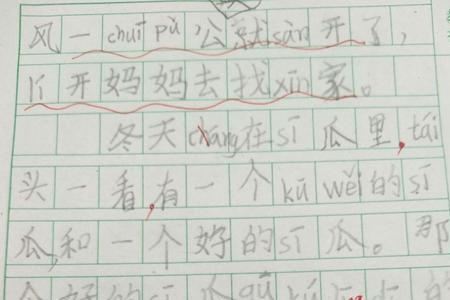 风一chuī pù公就sàn开了，
开妈妈去找xīn家。
冬天cháng在sī瓜里，tái
头一看，有一个kū wěi的sī
瓜，和一个好的sī瓜。那
个好的sī瓜